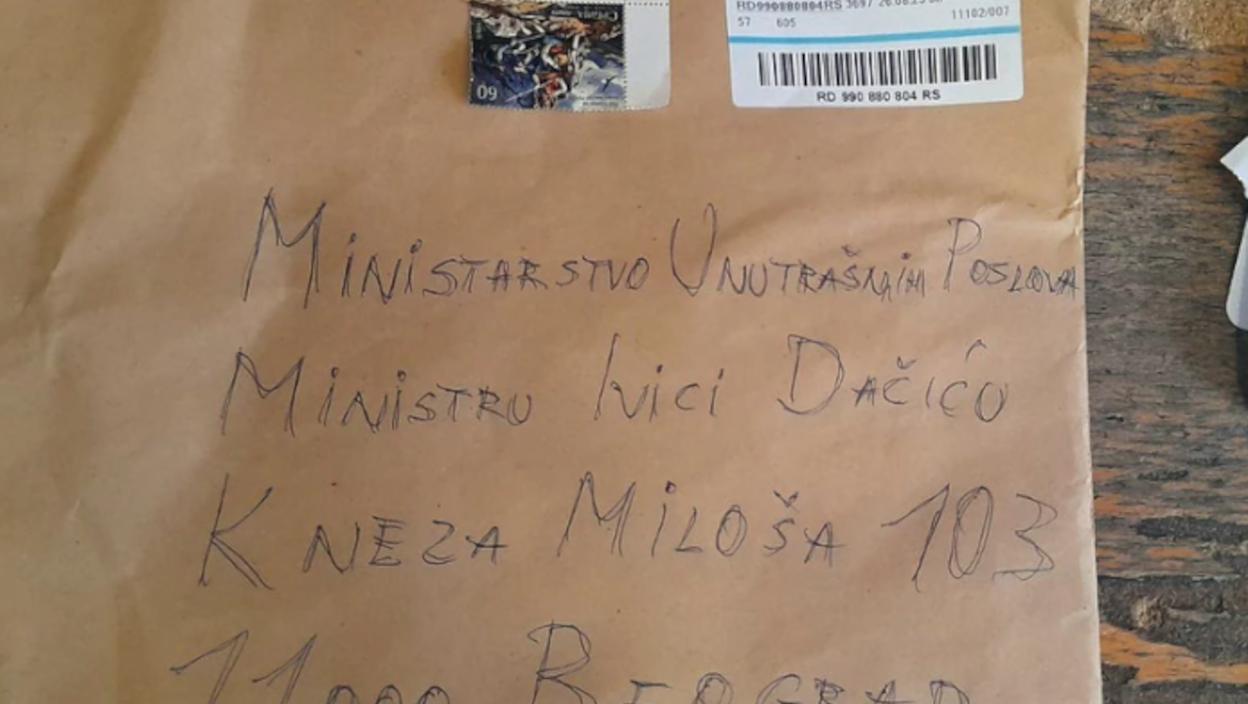 Србија
60
RD990880804RS 3697 26.08.25
57 605 11102/007
RD 990 880 804 RS
MINISTARSTVO UNUTRAŠNJIH POSLOVA
MINISTRU IVICI DAČIĆU
KNEZA MILOŠA 103
11000 BEOGRAD